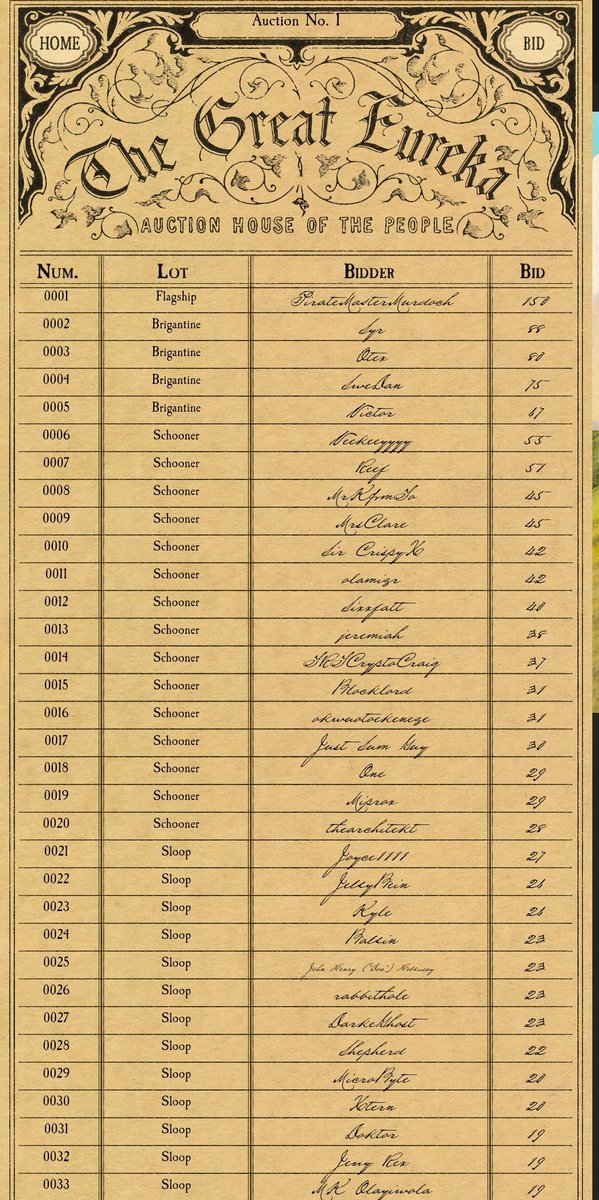 Auction No. 1
HOME
BID
The Great Eureka
AUCTION HOUSE OF THE PEOPLE
NUM. LOT BIDDER BID
0001 Flagship PirateMasterMurdoch 150
0002 Brigantine Syr 88
0003 Brigantine Otex 80
0004 Brigantine SweDan 75
0005 Brigantine Victor 67
0006 Schooner Veekeeyyyy 55
0007 Schooner Reef 51
0008 Schooner MrKfrmTo 45
0009 Schooner MrsClare 45
0010 Schooner Sir CrispyX 42
0011 Schooner olamizr 42
0012 Schooner Sixxfatt 40
0013 Schooner jeremiah 38
0014 Schooner CryptoCraig 37
0015 Schooner Blocklord 31
0016 Schooner 31
0017 Schooner Just Sum Guy 30
0018 Schooner One 29
0019 Schooner Miprox 29
0020 Schooner thearchitekt 28
0021 Sloop Joyce1111 27
0022 Sloop 26
0023 Sloop Kyle 26
0024 Sloop 23
0025 Sloop John Henry ("Doc") Holliday 23
0026 Sloop rabbithole 23
0027 Sloop DarkeGhost 23
0028 Sloop Shepherd 22
0029 Sloop MicroByte 20
0030 Sloop Xtern 20
0031 Sloop Doktor 19
0032 Sloop Jeny Rex 19
0033 Sloop MK Olayiwola 19